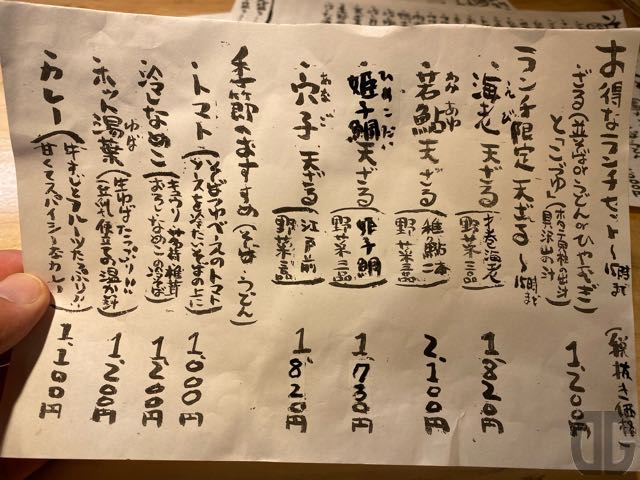 お得なランチセット〜15時まで
(税抜き価格)
ざる(並そばorうどんorひやむぎ)
と「こづゆ」(ホタテ貝柱の出汁 具沢山の汁) 1.200円
ランチ限定 天ざる〜15時まで
海老 えび 天ざる(才巻海老 野菜三品) 1.820円
若鮎 わかあゆ 天ざる(稚鮎二本 野菜三品) 2.100円
姫子鯛 ひめこだい 天ざる(姫子鯛 野菜三品) 1.730円
穴子 あなご 天ざる(江戸前 野菜三品) 1.820円
季節のおすすめ(そば、うどん)
トマト(そばつゆベースのトマトソースを冷たいそばの上に) 1.000円
冷しなめこ(キュウリ 茗荷 椎茸 おろし なめこの冷そば) 1.200円
ホット湯葉 ゆば(生ゆばたっぷり!! 豆乳仕立ての温かい汁) 1.200円
カレー(牛すじとフルーツたっぷり!! 甘くてスパイシーなカレー) 1.100円